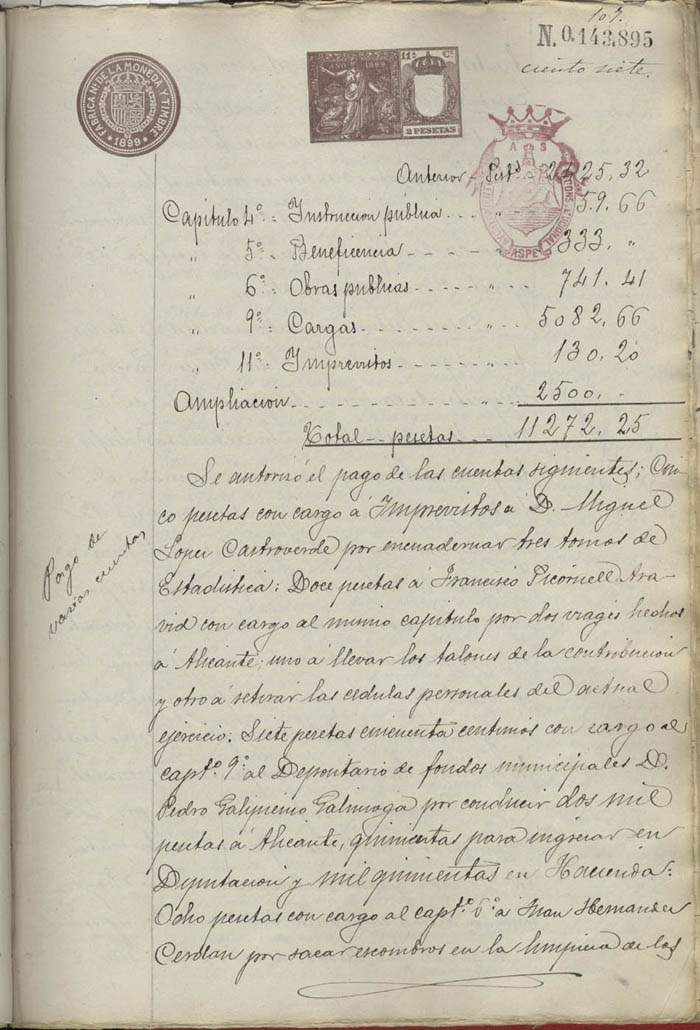 107.
N. 0.143,895
ciento siete.
FABRICA NL DE LA MONEDA Y TIMBRE
1899
AÑO 1899
11ª Cª
2 PESETAS
A S
ASPE
Anterior - Pest⁸ 2425,32
Capitulo 4º = Instruccion pública - - - " 59.66
" 5º = Beneficencia - - - - " 333. "
" 6º = Obras públicas - - - - " 741.41
" 9º = Cargas - - - - - - " - 5082,66
" 11º = Imprevistos - - - - " - 130.20
Ampliacion - - - - - - - - " - 2500. "
Total - pesetas - - - 11272.25
Se autorizó el pago de las cuentas siguientes; Cin-
co pesetas con cargo á Imprevistos á D. Miguel
Loper Castroverde por encuadernar tres tomos de
Estadistica: Doce pesetas á Francisco Picornell Ara-
vid con cargo al mismo capitulo por dos viages hechos
á Alicante, uno á llevar los talones de la contribucion
y otro á retirar las cedulas personales del actual
ejercicio: Siete pesetas cincuenta centimos con cargo al
captº. 9º al Depositario de fondos municipales D.
Pedro Galipienso Galinsoga por conducir dos mil
pesetas á Alicante, quinientas para ingresar en
Diputacion y mil quinientas en Hacienda:
Ocho pesetas con cargo al captº. 6º á Juan Hernandez
Cerdan por sacar escombros en la limpieza de las
Pago de
varias cuentas